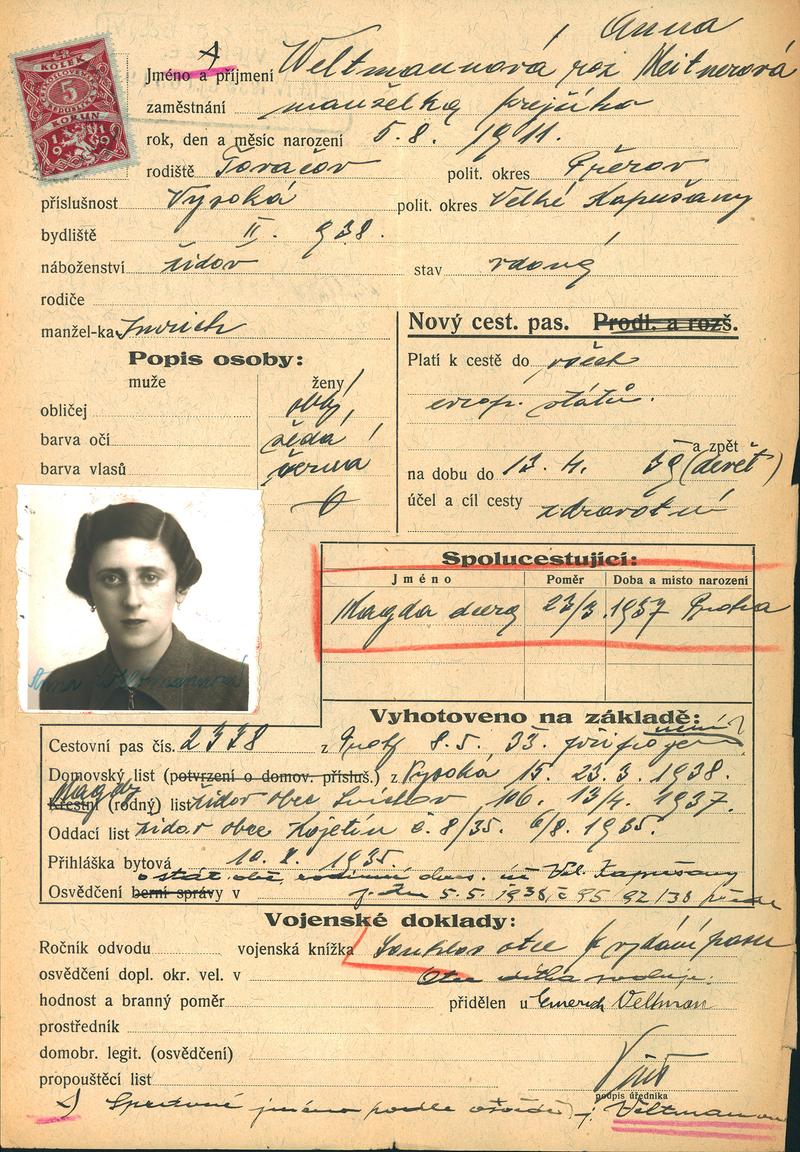 Anna
A
Jméno a příjmení Weltmannová roz Meitnerová
zaměstnání manželka krejčího
rok, den a měsíc narození 5. 8. 1911.
rodiště Tovačov polit. okres Přerov
příslušnost Vysoká polit. okres Velké Kapušany
bydliště II. 938.
náboženství židov stav vdaná
rodiče
manžel-ka Imrich
Nový cest. pas. Prodl. a rozš.
Popis osoby:
muže ženy
obličej obl.
barva očí šedá
barva vlasů černá
Platí k cestě do všech
evrop. států.
a zpět
na dobu do 13. 4. 39 (devět)
účel a cíl cesty zdravotní
Spolucestující:
Jméno Poměr Doba a místo narození
Magda dcera 23/3. 1937 Praha
KOLEK
5
KORUN
Anna Weltmannová
Vyhotoveno na základě:
Cestovní pas čís. 2378 z 8. 5. 33.
Domovský list (potvrzení o domov. přísluš.) z Vysoká 15. 23. 3. 1938.
Magdy
Křestní (rodný) list židov obec Smíchov 106. 13/4. 1937.
Oddací list židov obce Kojetín č. 8/35. 6/8. 1935.
Přihláška bytová 10. X. 1935.
o stát. obč. Vel. Kapušany
Osvědčení berní správy v ze dne 5. 5. 1938, č 95 92/38
Vojenské doklady:
Ročník odvodu vojenská knížka Souhlas otce k vydání pasu
osvědčení dopl. okr. vel. v Otec dítka
hodnost a branný poměr přidělen u Emerich Veltman
prostředník
domobr. legit. (osvědčení)
propouštěcí list
podpis úředníka
A Správné jméno podle osvědč. j. Veltmanová